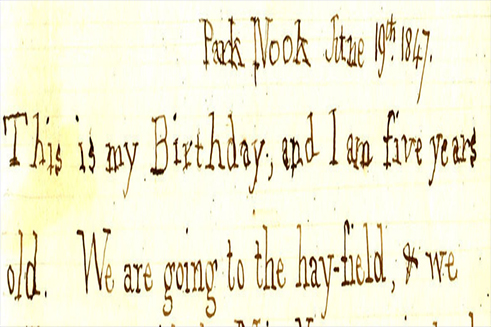 Park Nook June 19th. 1847.
This is my Birthday, and I am five years
old. We are going to the hay-field, & we